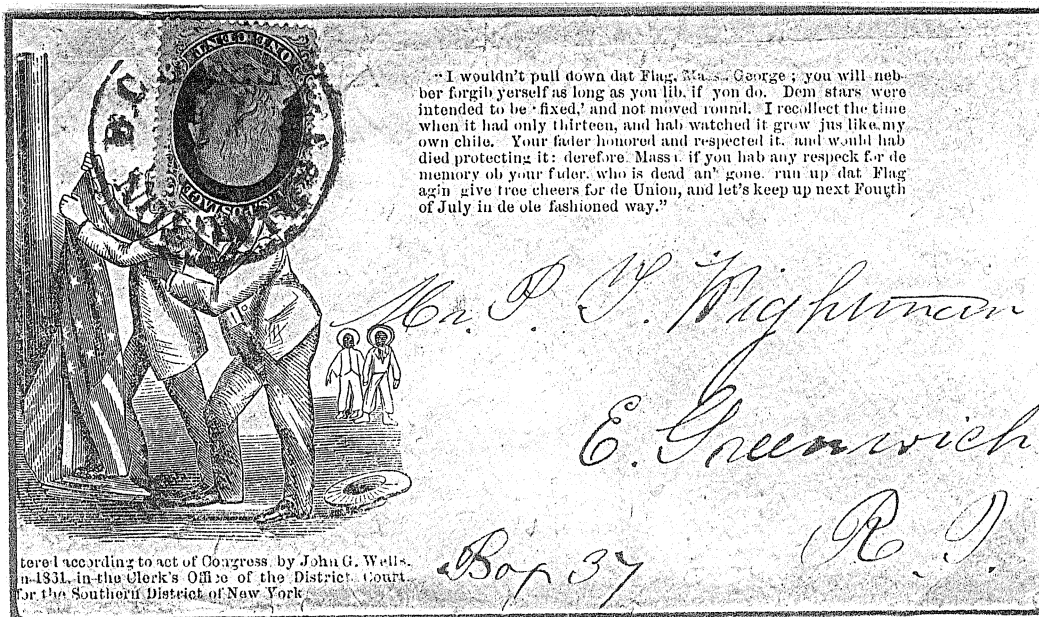 D.C.
U.S. POSTAGE
"I wouldn't pull down dat Flag, Massa George ; you will neb-
ber forgib yerself as long as you lib, if you do. Dem stars were
intended to be 'fixed,' and not moved round. I recollect the time
when it had only thirteen, and hab watched it grow jus like my
own chile. Your fader honored and respected it, and would hab
died protecting it : derefore, Massa, if you hab any respeck for de
memory ob your fader, who is dead an' gone, run up dat Flag
agin give tree cheers for de Union, and let's keep up next Fourth
of July in de ole fashioned way."
Mr. P. T. Wightman
E. Greenwich
R. I.
Box 37
tered according to act of Congress, by John G. Wells,
n 1831, in the Clerk's Office of the District Court,
for the Southern District of New York